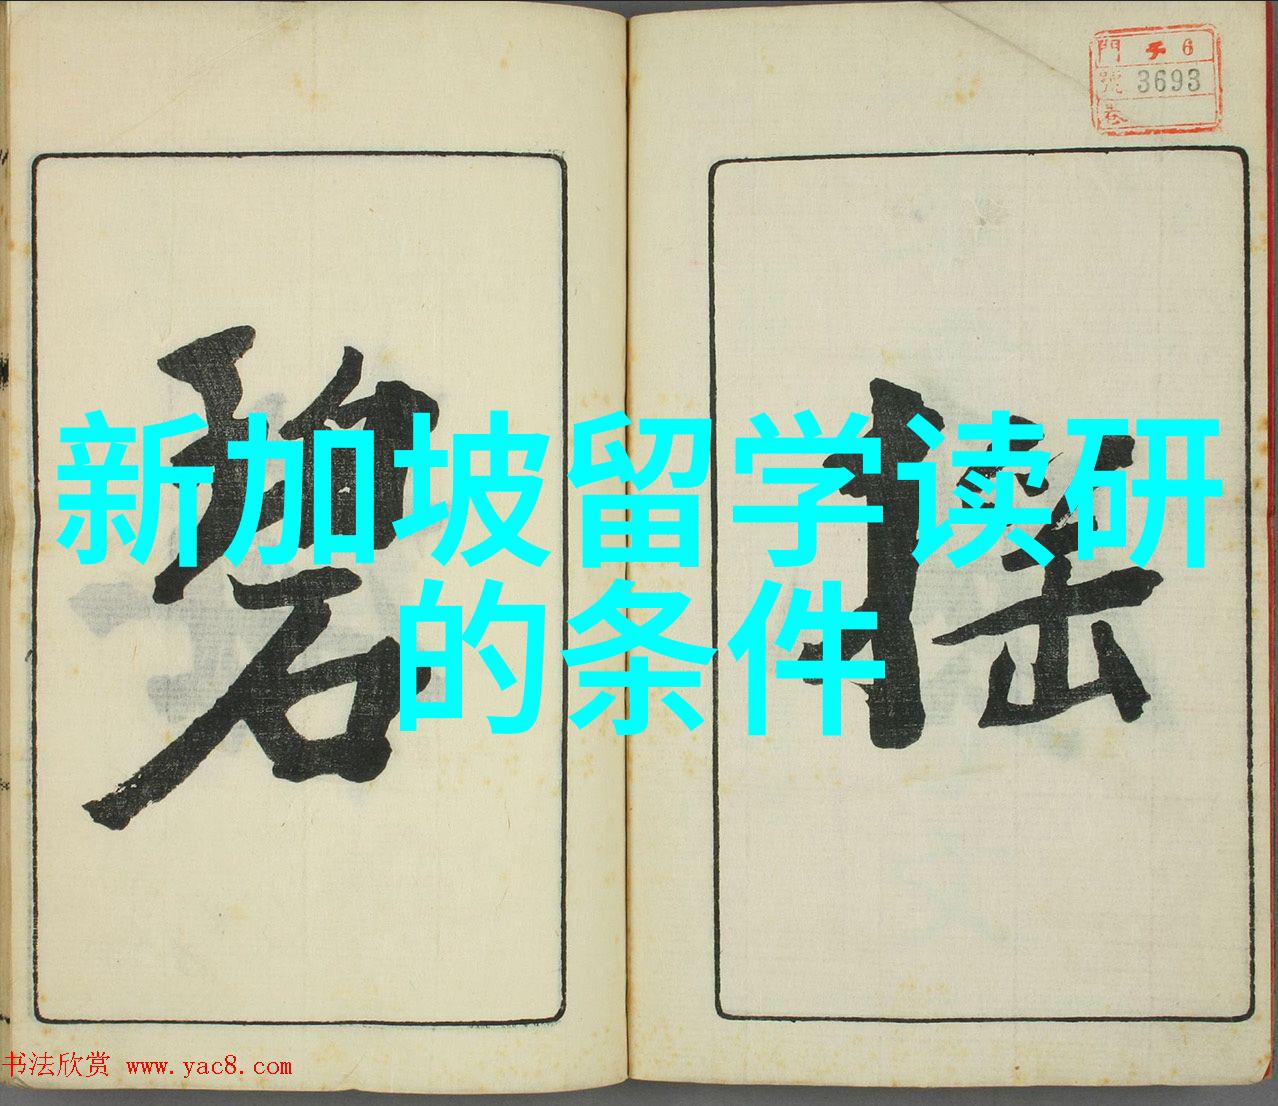 門 チ 6
號 3693
巻
搖
碧
新加坡留学读研
的条件
书法欣赏 www.yac8.com